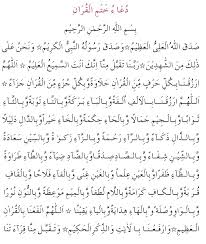 دُعَاءُ خَتْمِ الْقُرْاٰنِ
بِسْمِ اللّٰهِ الرَّحْمٰنِ الرَّحِيْمِ
صَدَقَ اللّٰهُ الْعَلِيُّ الْعَظِيْمُ وَصَدَقَ رَسُوْلُهُ النَّبِيُّ الْكَرِيْمُ وَنَحْنُ عَلٰى
ذٰلِكَ مِنَ الشّٰهِدِيْنَ رَبَّنَا تَقَبَّلْ مِنَّا اِنَّكَ اَنْتَ السَّمِيْعُ الْعَلِيْمُ اَللّٰهُمَّ
ارْزُقْنَا بِكُلِّ حَرْفٍ مِّنَ الْقُرْاٰنِ حَلَاوَةً وَّبِكُلِّ جُزْءٍ مِّنَ الْقُرْاٰنِ جَزَاءً اَللّٰهُمَّ
ارْزُقْنَا بِالْاَلِفِ اُلْفَةً وَّبِالْبَاءِ بَرَكَةً وَّبِالتَّاءِ تَوْبَةً وَّبِالثَّاءِ
ثَوَابًا وَّبِالْجِيْمِ جَمَالًا وَّبِالْحَاءِ حِكْمَةً وَّبِالْخَاءِ خَيْرًا وَّبِالدَّالِ دَلِيْلًا
وَّبِالذَّالِ ذَكَاءً وَّبِالرَّاءِ رَحْمَةً وَّبِالزَّاءِ زَكٰوةً وَّبِالسِّيْنِ سَعَادَةً
وَّبِالشِّيْنِ شِفَاءً وَّبِالصَّادِ صِدْقًا وَّبِالضَّادِ ضِيَاءً وَّبِالطَّاءِ طَرَاوَةً
وَّبِالظَّاءِ ظَفَرًا وَّبِالْعَيْنِ عِلْمًا وَّبِالْغَيْنِ غِنًى وَّبِالْفَاءِ فَلَاحًا وَّبِالْقَافِ
قُرْبَةً وَّبِالْكَافِ كَرَامَةً وَّبِاللَّامِ لُطْفًا وَّبِالْمِيْمِ مَوْعِظَةً وَّبِالنُّوْنِ نُوْرًا
وَّبِالْوَاوِ وُصْلَةً وَّبِالْهَاءِ هِدَايَةً وَّبِالْيَاءِ يَقِيْنًا اَللّٰهُمَّ انْفَعْنَا بِالْقُرْاٰنِ
الْعَظِيْمِ وَارْفَعْنَا بِالْاٰيٰتِ وَالذِّكْرِ الْحَكِيْمِ وَتَقَبَّلْ مِنَّا